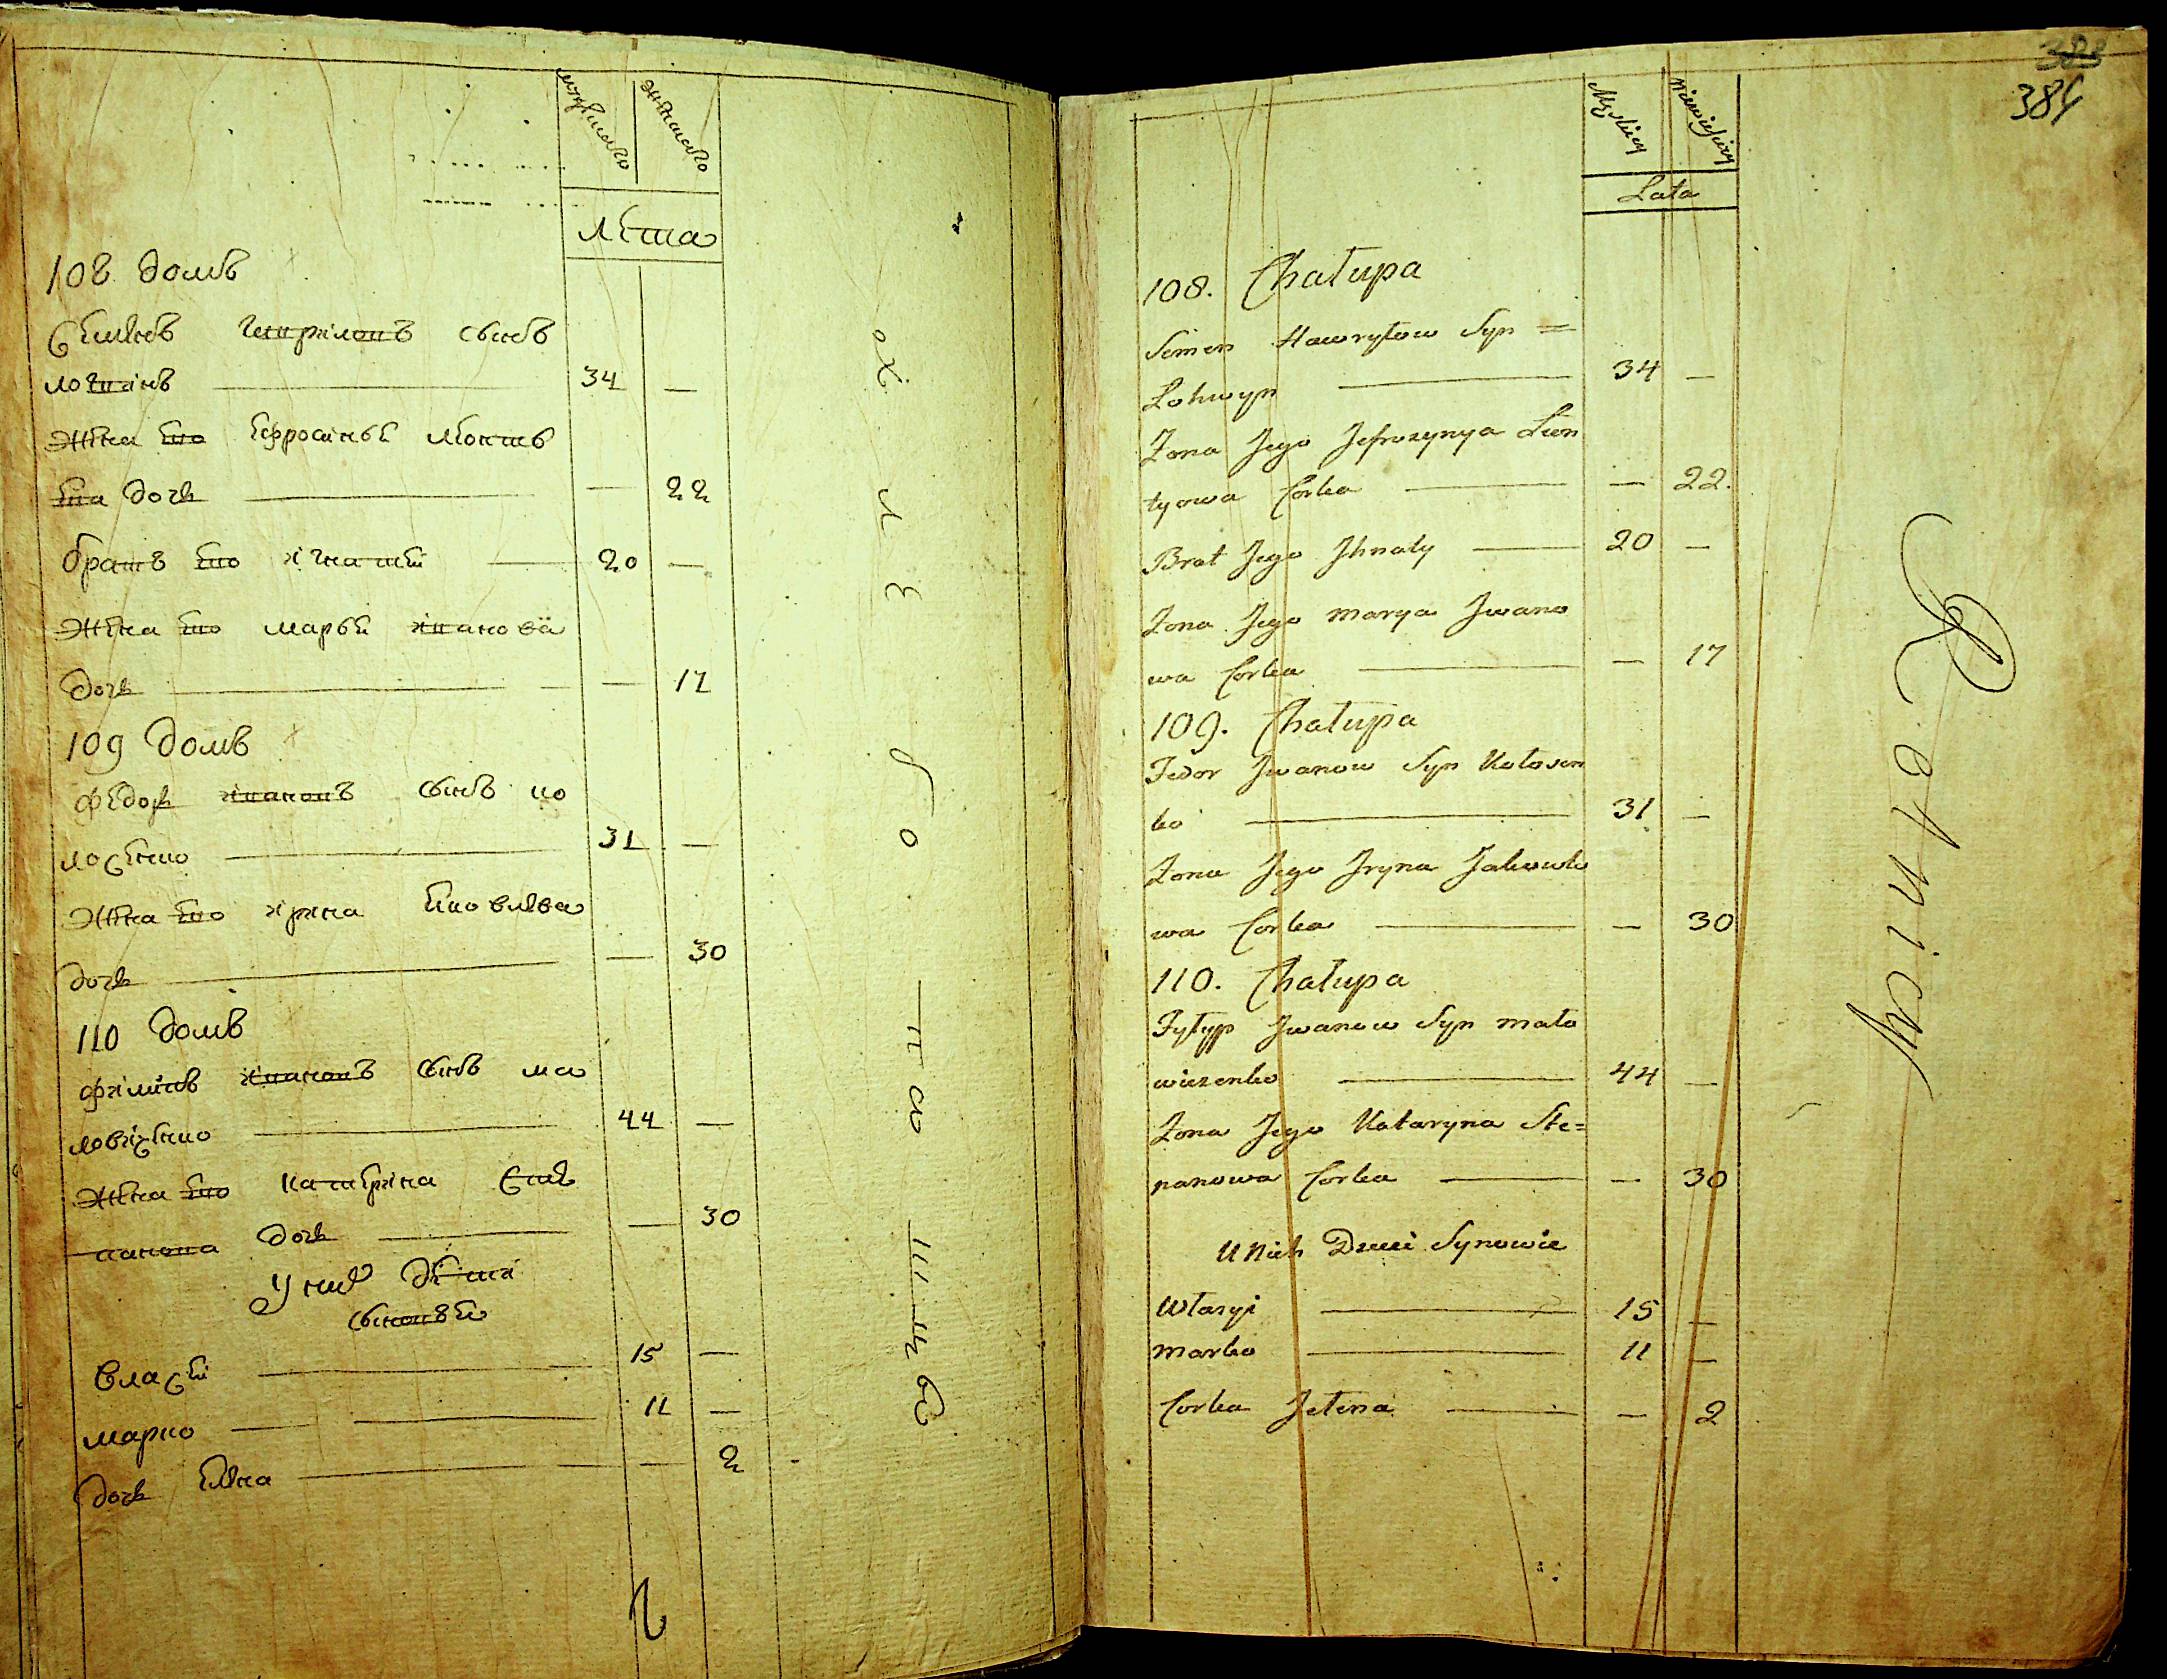 мужеска женска
Лета
108 домъ
Семенъ гаврiловъ сынъ
логвiнъ — 34 —
жена ево ефросiнья леонть
ева дочь — — 22
братъ ево iгнатей — 20 —
жена ево марья iванова
дочь — — 17
109 домъ
федоръ iвановъ сынъ ко
лосенко — 31 —
жена ево iрiна яковлева
дочь — — 30
110 домъ
фiлипъ iвановъ сынъ ма
ловiченко — 44 —
жена ево катерiна сте
панова дочь — — 30
У них дети
сыновья
Власей — 15 —
марко — 11 —
дочь елена — — 2
хлеборобота
384
Męskiey Niewieściey
Lata
108. Chałupa
Semen Hawryłow Syn =
Lohwyn — 34 —
Zona Jego Jefrosynya Leon
tyowa Corka — — 22.
Brat Jego Jhnaty — 20 —
Zona Jego Marya Jwano
wa Corka — — 17
109. Chałupa
Fedor Jwanow Syn Kołosen
ko — 31 —
Zona Jego Jryna Jakowle
wa Corka — — 30
110. Chałupa
Fyłypp Jwanow Syn Mało
wiczenko — 44 —
Zona Jego Kataryna Ste=
panowa Corka — — 30
U Nich Dzieci Synowie
Własyi — 15 —
Marko — 11 —
Corka Jełena — — 2
Rolnicy